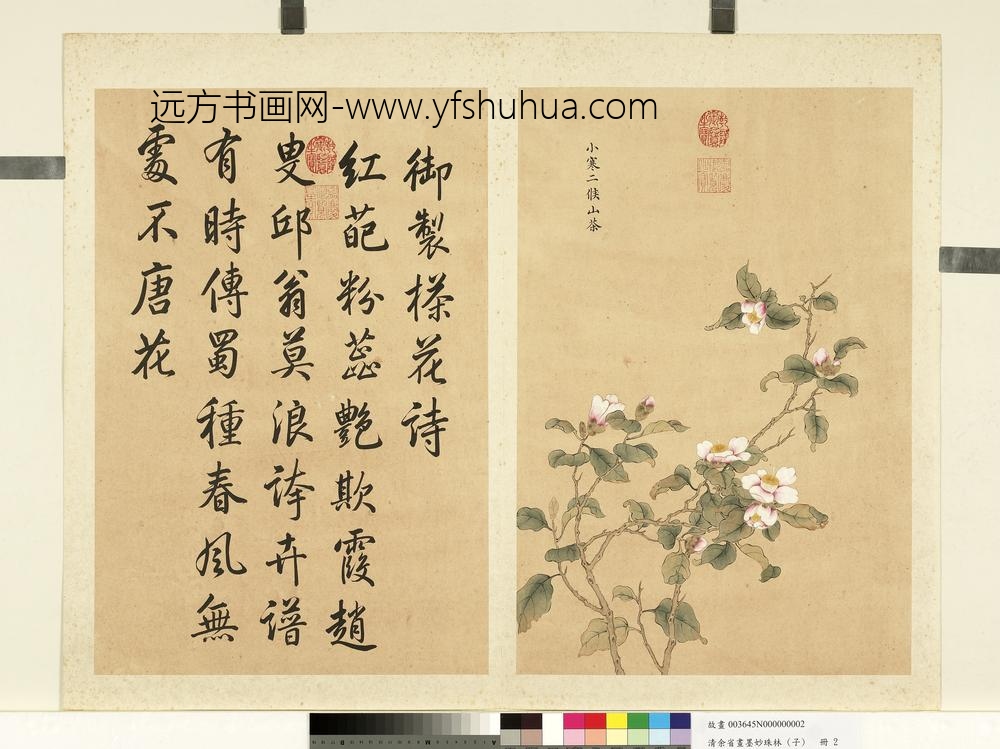 远方书画网-www.yfshuhua.com
小寒二候山茶
御製 花詩
紅葩粉蕊艷欺霞趙
叟邱翁莫浪誇卉譜
有時傳蜀種春風無
處不唐花
故畫 003645N000000002
清余省畫墨妙珠林（子） 冊 2